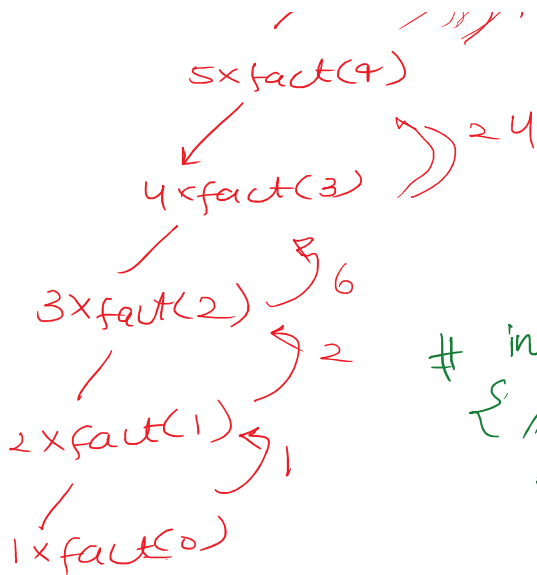 5×fact(4)
24
4×fact(3)
6
3×fact(2)
2
# in
{
2×fact(1)
1
1×fact(0)